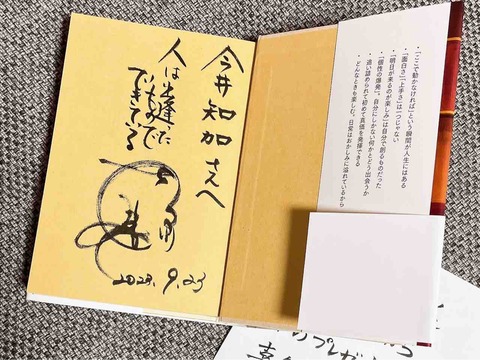 ・「ここで動かなければ」という瞬間が人生にはある
・「面白さ」「上手さ」は一つじゃない
・「明日が来るのが楽しみ」は自分で創るものだった
・「個性の爆発」。自分にしかない何かとどう出会うか
・追い詰められて初めて真価を発揮できる
・どんなときも楽しむ。日常はおかしみに溢れているから
今井知加さんへ
人は出逢った
もので
できてる
2023. 9.23